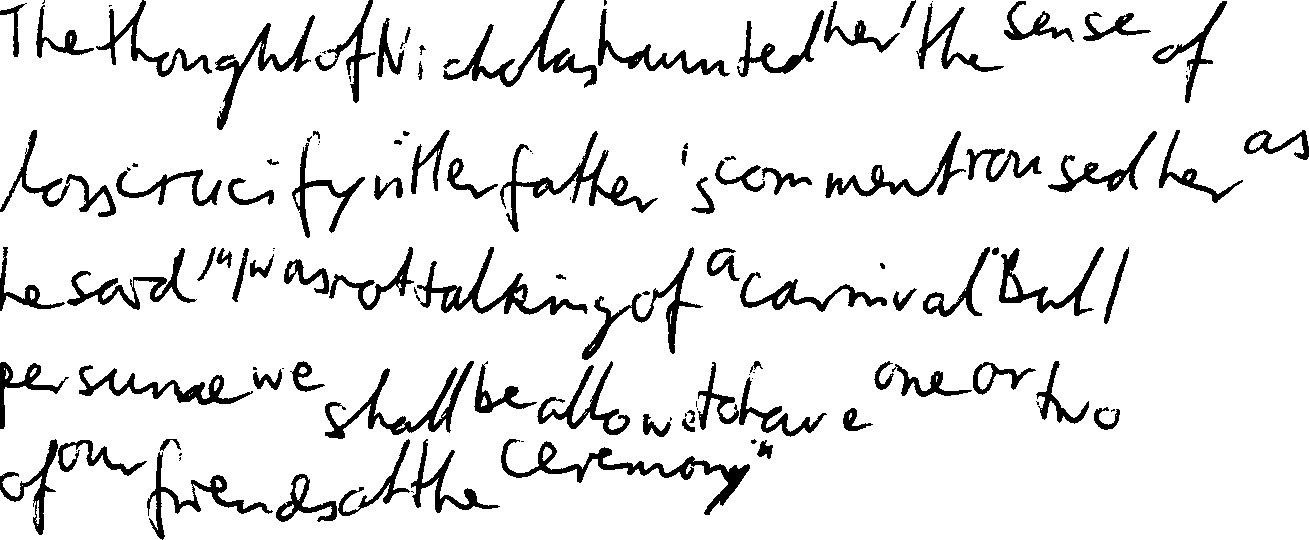 The thought of Nicholas haunted her, the sense of
loss crucifyin Her father's comment roused her as
he said " I was not talking of a carnival But I
persume we shall be allowet to have one or two
of our friends at the ceremony"